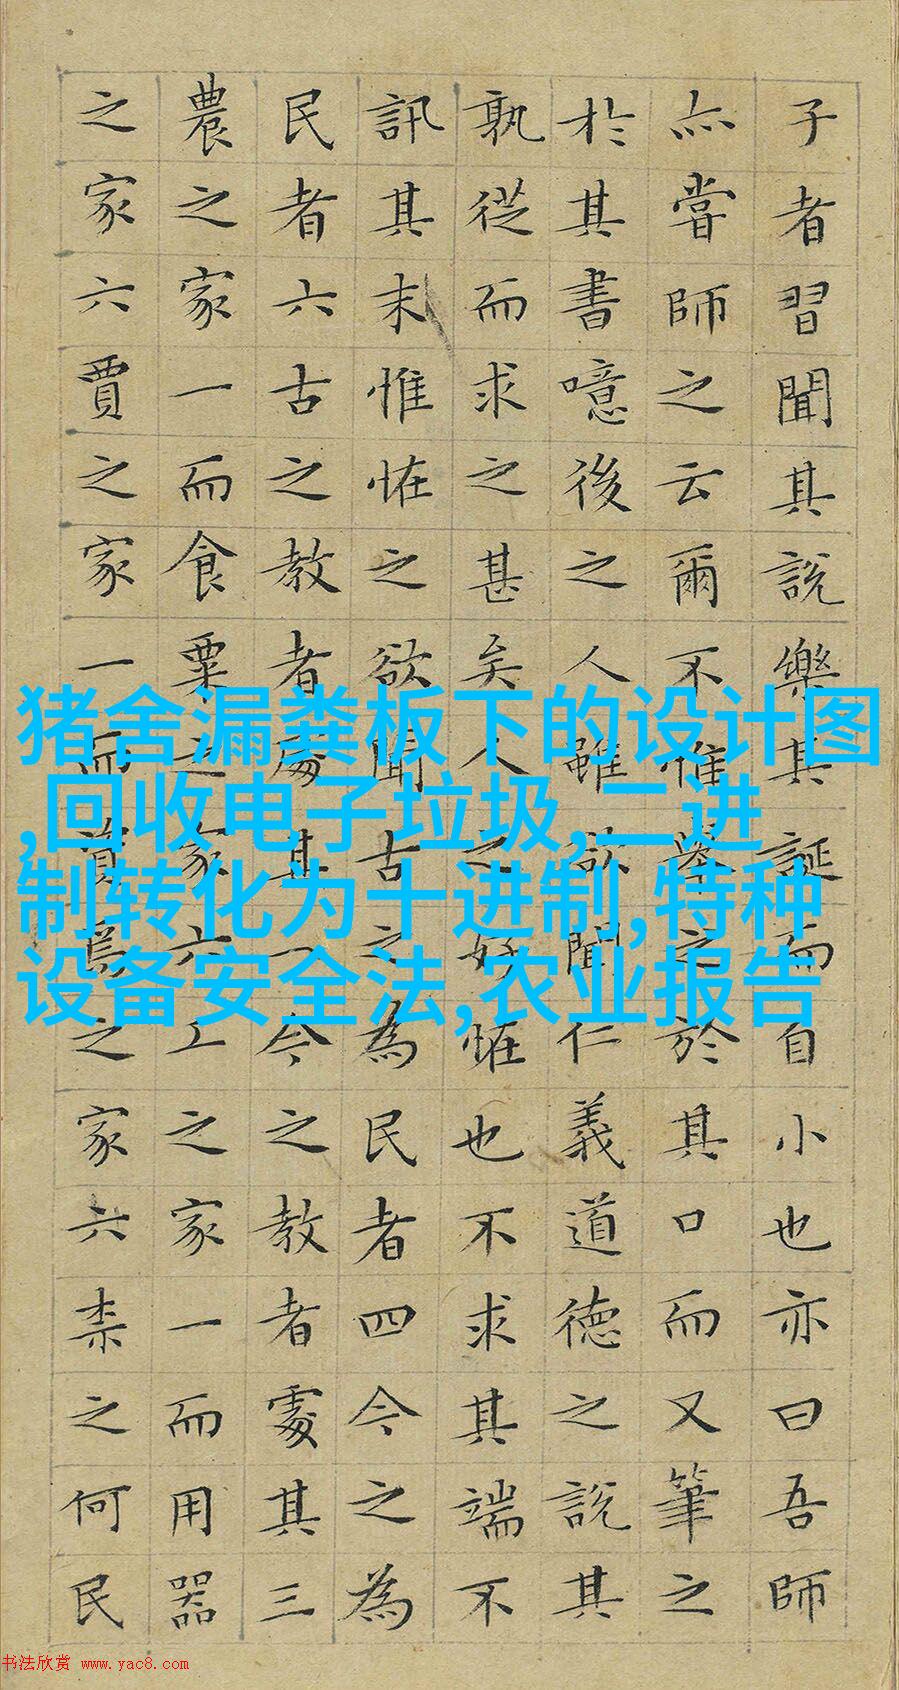 子者習聞其說樂其誕而自小也亦曰吾師
亦嘗師之云爾不惟舉之於其口而又筆之
於其書噫後之人雖欲聞仁義道德之說其
孰從而求之甚矣人之好恠也不求其端不
訊其末惟恠之欲聞古之為民者四今之為
民者六古之教者處其一今之教者處其三
農之家一而食粟之家六工之家一而用器
之家六賈之家一而資焉之家六柰之何民
猪舍漏粪板下的设计图
,回收电子垃圾,二进
制转化为十进制,特种
设备安全法,农业报告
书法欣赏 www.yac8.com